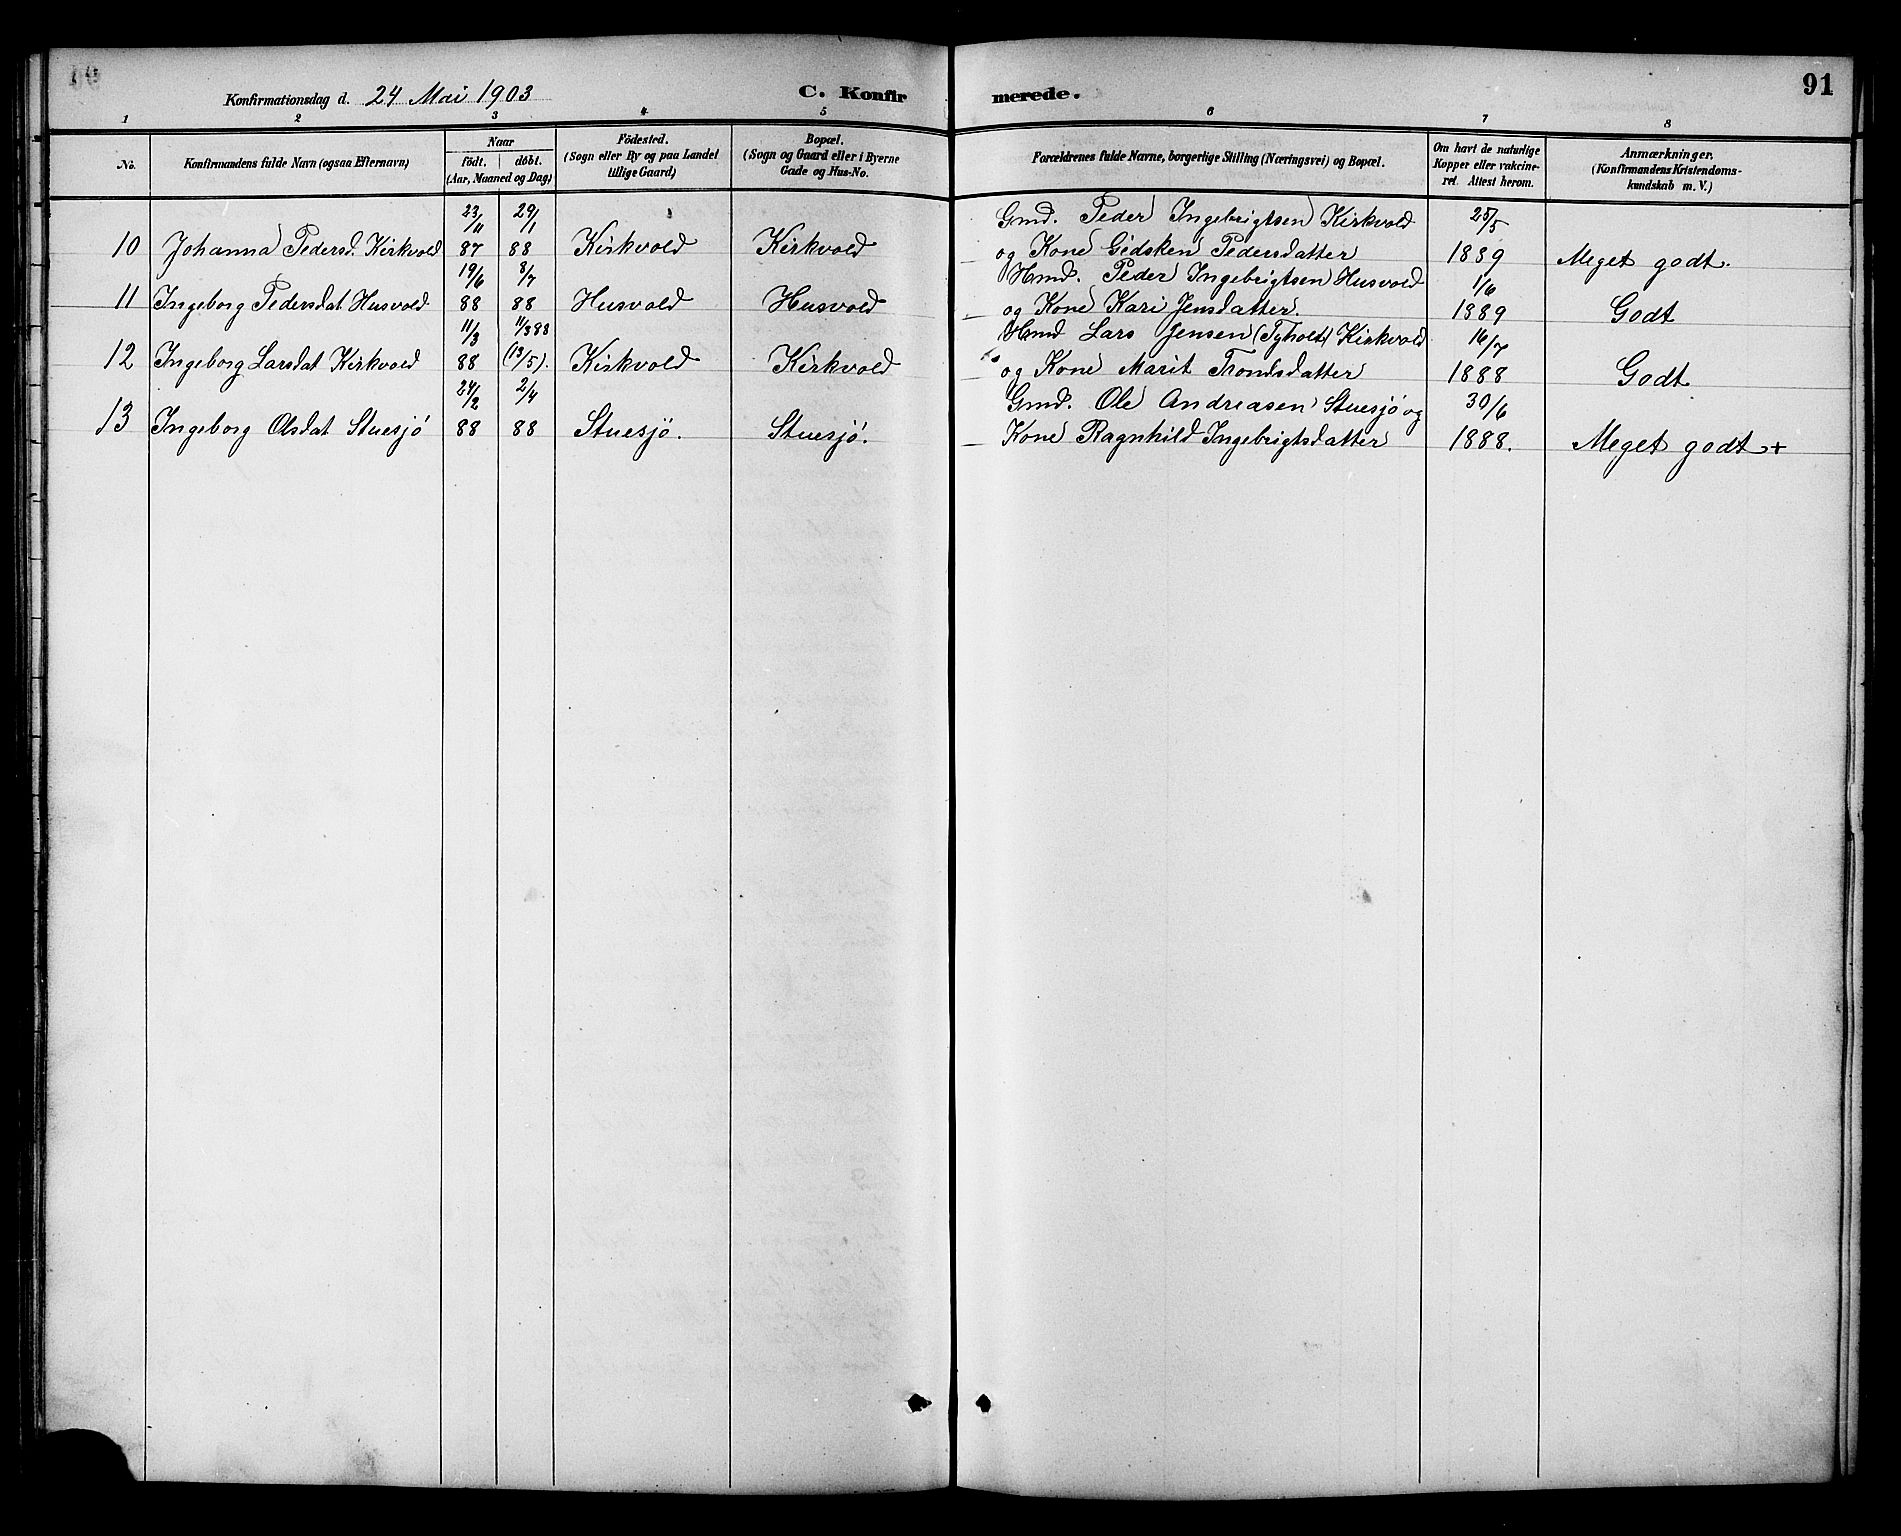 91
Konfirmationsdag d. 24 Mai 1903
C. Konfirmerede.
1 2 3 4 5 6 7 8
No.
Konfirmandens fulde Navn (ogsaa Efternavn)
Naar
födt. döbt.
(Aar, Maaned og Dag)
Födested.
(Sogn eller By og paa Landet
tillige Gaard)
Bopæl.
(Sogn og Gaard eller i Byerne
Gade og Hus-No.
Forældrenes fulde Navne, borgerlige Stilling (Næringsvei) og Bopæl.
Om havt de naturlige
Kopper eller vakcine-
ret. Attest herom.
Anmærkninger.
(Konfirmandens Kristendoms-
kundskab m. V.)
23/11 29/1 Gmd. Peder Ingebrigtsen Kirkvold 25/5
10 Johanna Pedersd. Kirkvold 87 88 Kirkvold Kirkvold og Kone Gidsken Pedersdatter 1889 Meget godt.
19/6 8/7 Hmd. Peder Ingebrigtsen Husvold 1/6
11 Ingeborg Pedersdat Husvold 88 88 Husvold Husvold og Kone Kari Jensdatter. 1889 Godt
11/3 11/3 88 Hmd Lars Jensen (Tyholt) Kirkvold 16/7
12 Ingeborg Larsdat Kirkvold 88 (13/5). Kirkvold Kirkvold og Kone Marit Trondsdatter 1888 Godt
24/2 2/4 Gmd. Ole Andreasen Stuesjö og 30/6
13 Ingeborg Olsdat Stuesjö 88 88 Stuesjö. Stuesjö. Kone Ragnhild Ingebrigtsdatter 1888. Meget godt +